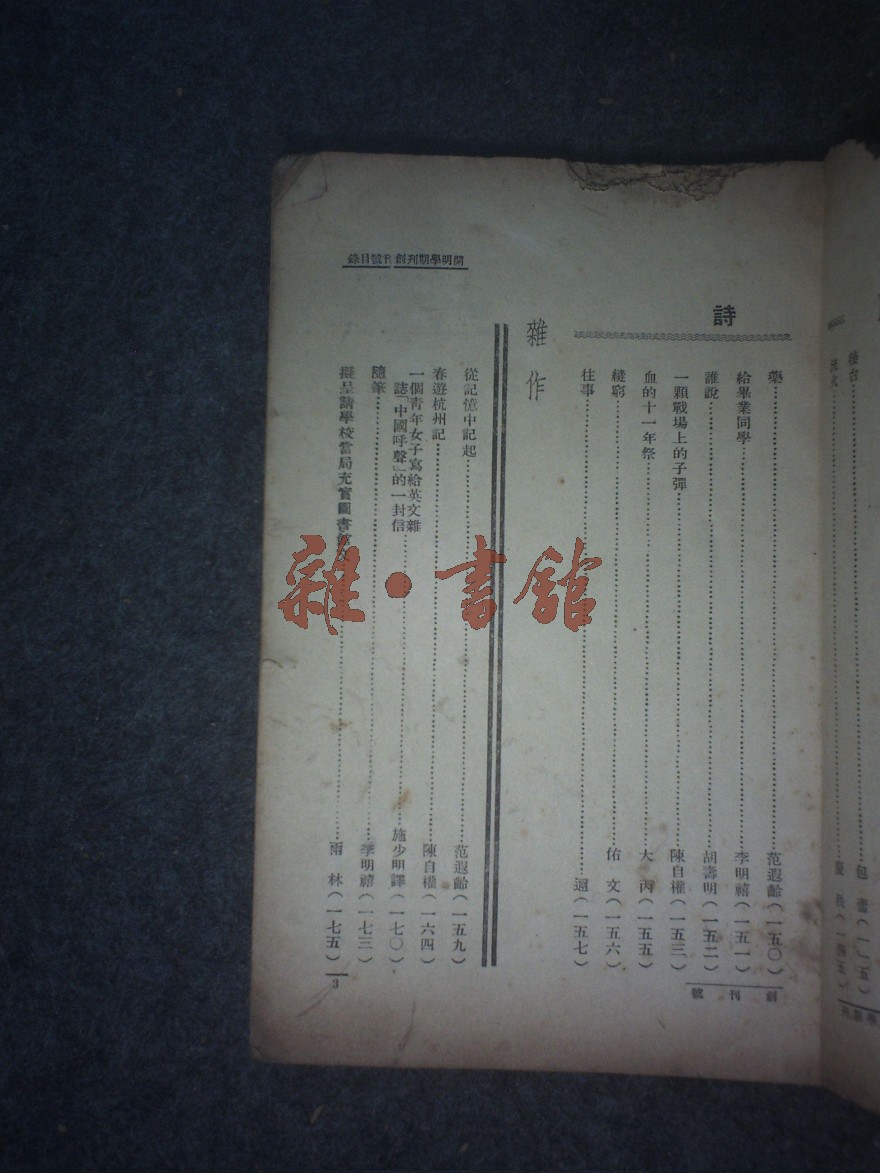 開明學期刊創刊號目錄
詩
藥……范遐齡(一五〇)
給畢業同學……李明禧(一五一)
誰說……胡壽明(一五二)
一顆戰場上的子彈……陳自權(一五三)
血的十一年祭……大丙(一五五)
縫窮……佑文(一五六)
往事……迴(一五七)
雜作
從記憶中記起……范遐齡(一五九)
春遊杭州記……陳自權(一六四)
一個青年女子寫給英文雜
誌「中國呼聲」的一封信……施少明譯(一七〇)
隨筆……李明禧(一七三)
擬呈請學校當局充實圖書館文……雨林(一七五)
創刊號
3
雜·書館